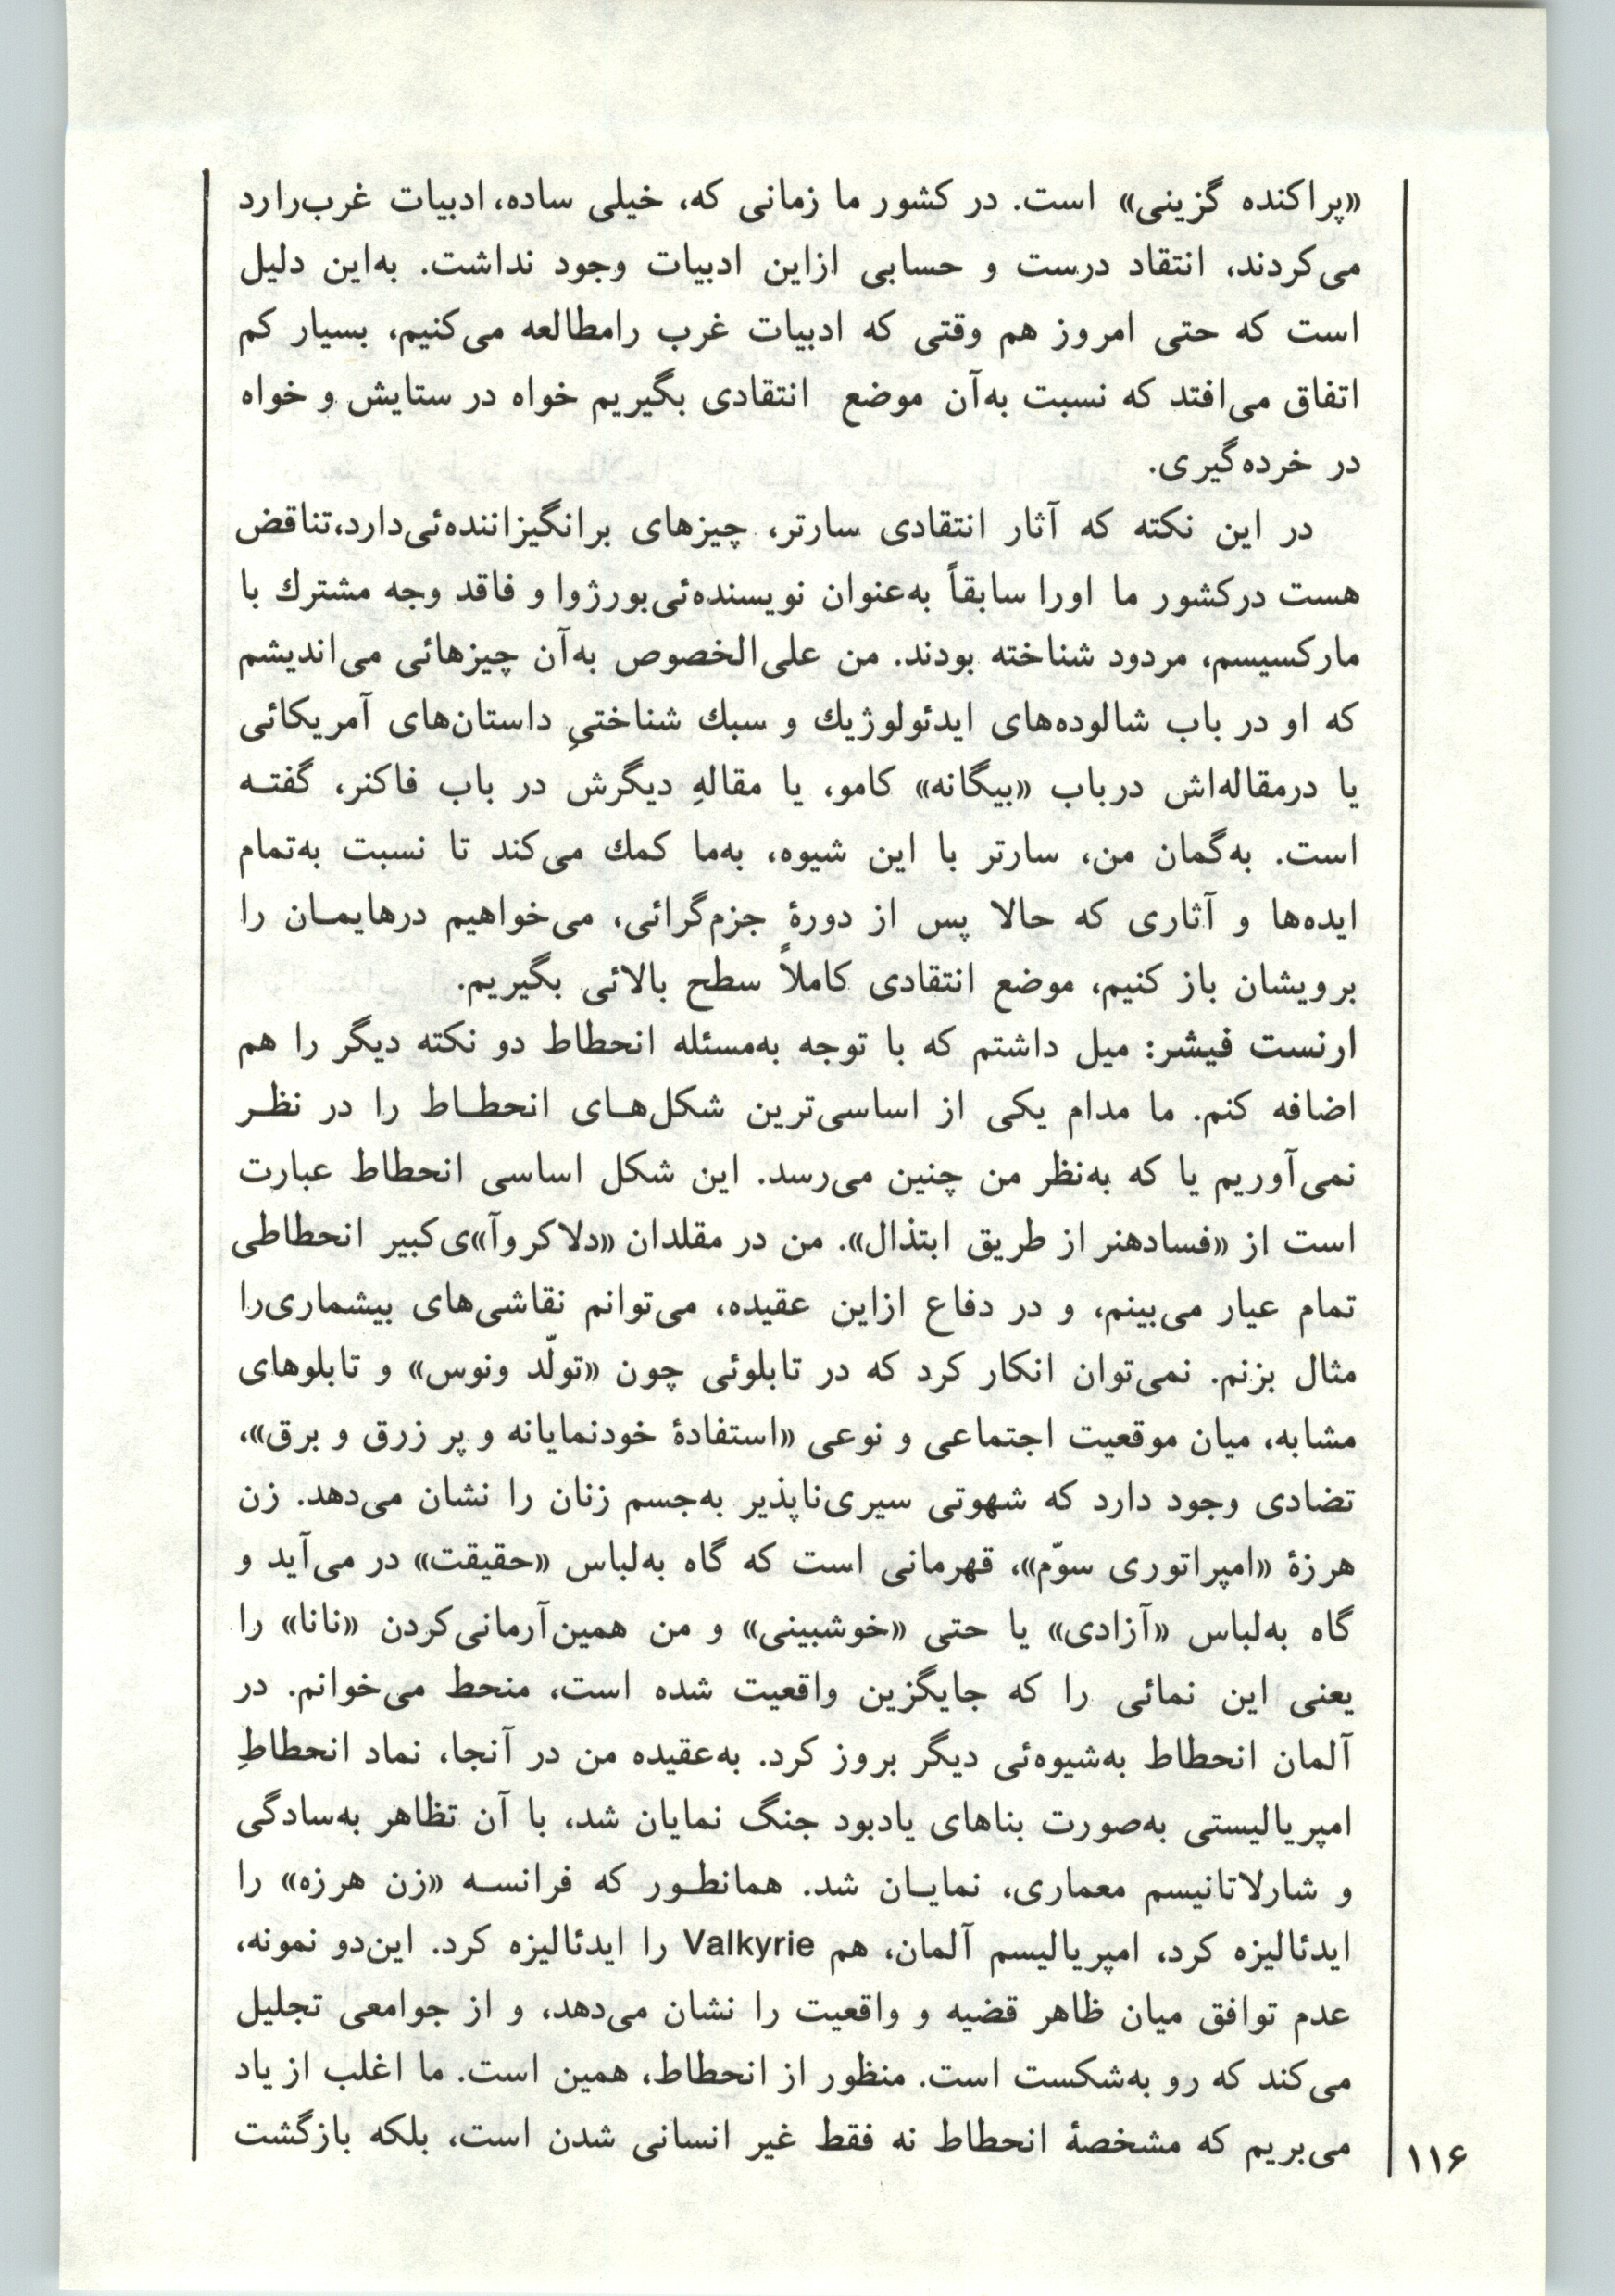 «پراکنده گزینی» است. در کشور ما زمانی که، خیلی ساده، ادبیات غرب‌رارد
می‌کردند، انتقاد درست و حسابی ازاین ادبیات وجود نداشت. به‌این دلیل
است که حتی امروز هم وقتی که ادبیات غرب رامطالعه می‌کنیم، بسیار کم
اتفاق می‌افتد که نسبت به‌آن موضع انتقادی بگیریم خواه در ستایش و خواه
در خرده‌گیری.
در این نکته که آثار انتقادی سارتر، چیزهای برانگیزاننده‌ئی‌دارد،تناقض
هست درکشور ما اورا سابقاً به‌عنوان نویسنده‌ئی‌بورژوا و فاقد وجه مشترك با
مارکسیسم، مردود شناخته بودند. من علی‌الخصوص به‌آن چیزهائی می‌اندیشم
که او در باب شالوده‌های ایدئولوژیك و سبك شناختیِ داستان‌های آمریکائی
یا درمقاله‌اش درباب «بیگانه» کامو، یا مقالهِ دیگرش در باب فاکنر، گفتـه
است. به‌گمان من، سارتر با این شیوه، به‌ما کمك می‌کند تا نسبت به‌تمام
ایده‌ها و آثاری که حالا پس از دورهٔ جزم‌گرائی، می‌خواهیم درهایمـان را
برویشان باز کنیم، موضع انتقادی کاملاً سطح بالائی بگیریم.
ارنست فیشر: میل داشتم که با توجه به‌مسئله انحطاط دو نکته دیگر را هم
اضافه کنم. ما مدام یکی از اساسی‌ترین شکل‌هـای انحطـاط را در نظـر
نمی‌آوریم یا که به‌نظر من چنین می‌رسد. این شکل اساسی انحطاط عبارت
است از «فسادهنر از طریق ابتذال». من در مقلدان «دلاکروآ»ی‌کبیر انحطاطی
تمام عیار می‌بینم، و در دفاع ازاین عقیده، می‌توانم نقاشی‌های بیشماری‌را
مثال بزنم. نمی‌توان انکار کرد که در تابلوئی چون «تولّد ونوس» و تابلوهای
مشابه، میان موقعیت اجتماعی و نوعی «استفادهٔ خودنمایانه و پر زرق و برق»،
تضادی وجود دارد که شهوتی سیری‌ناپذیر به‌جسم زنان را نشان می‌دهد. زن
هرزهٔ «امپراتوری سوّم»، قهرمانی است که گاه به‌لباس «حقیقت» در می‌آید و
گاه به‌لباس «آزادی» یا حتی «خوشبینی» و من همین‌آرمانی‌کردن «نانا» را
یعنی این نمائی را که جایگزین واقعیت شده است، منحط می‌خوانم. در
آلمان انحطاط به‌شیوه‌ئی دیگر بروز کرد. به‌عقیده من در آنجا، نماد انحطاطِ
امپریالیستی به‌صورت بناهای یادبود جنگ نمایان شد، با آن تظاهر به‌سادگی
و شارلاتانیسم معماری، نمایـان شد. همانطـور که فرانسـه «زن هرزه» را
ایدئالیزه کرد، امپریالیسم آلمان، هم Valkyrie را ایدئالیزه کرد. این‌دو نمونه،
عدم توافق میان ظاهر قضیه و واقعیت را نشان می‌دهد، و از جوامعی تجلیل
می‌کند که رو به‌شکست است. منظور از انحطاط، همین است. ما اغلب از یاد
می‌بریم که مشخصهٔ انحطاط نه فقط غیر انسانی شدن است، بلکه بازگشت
۱۱۶